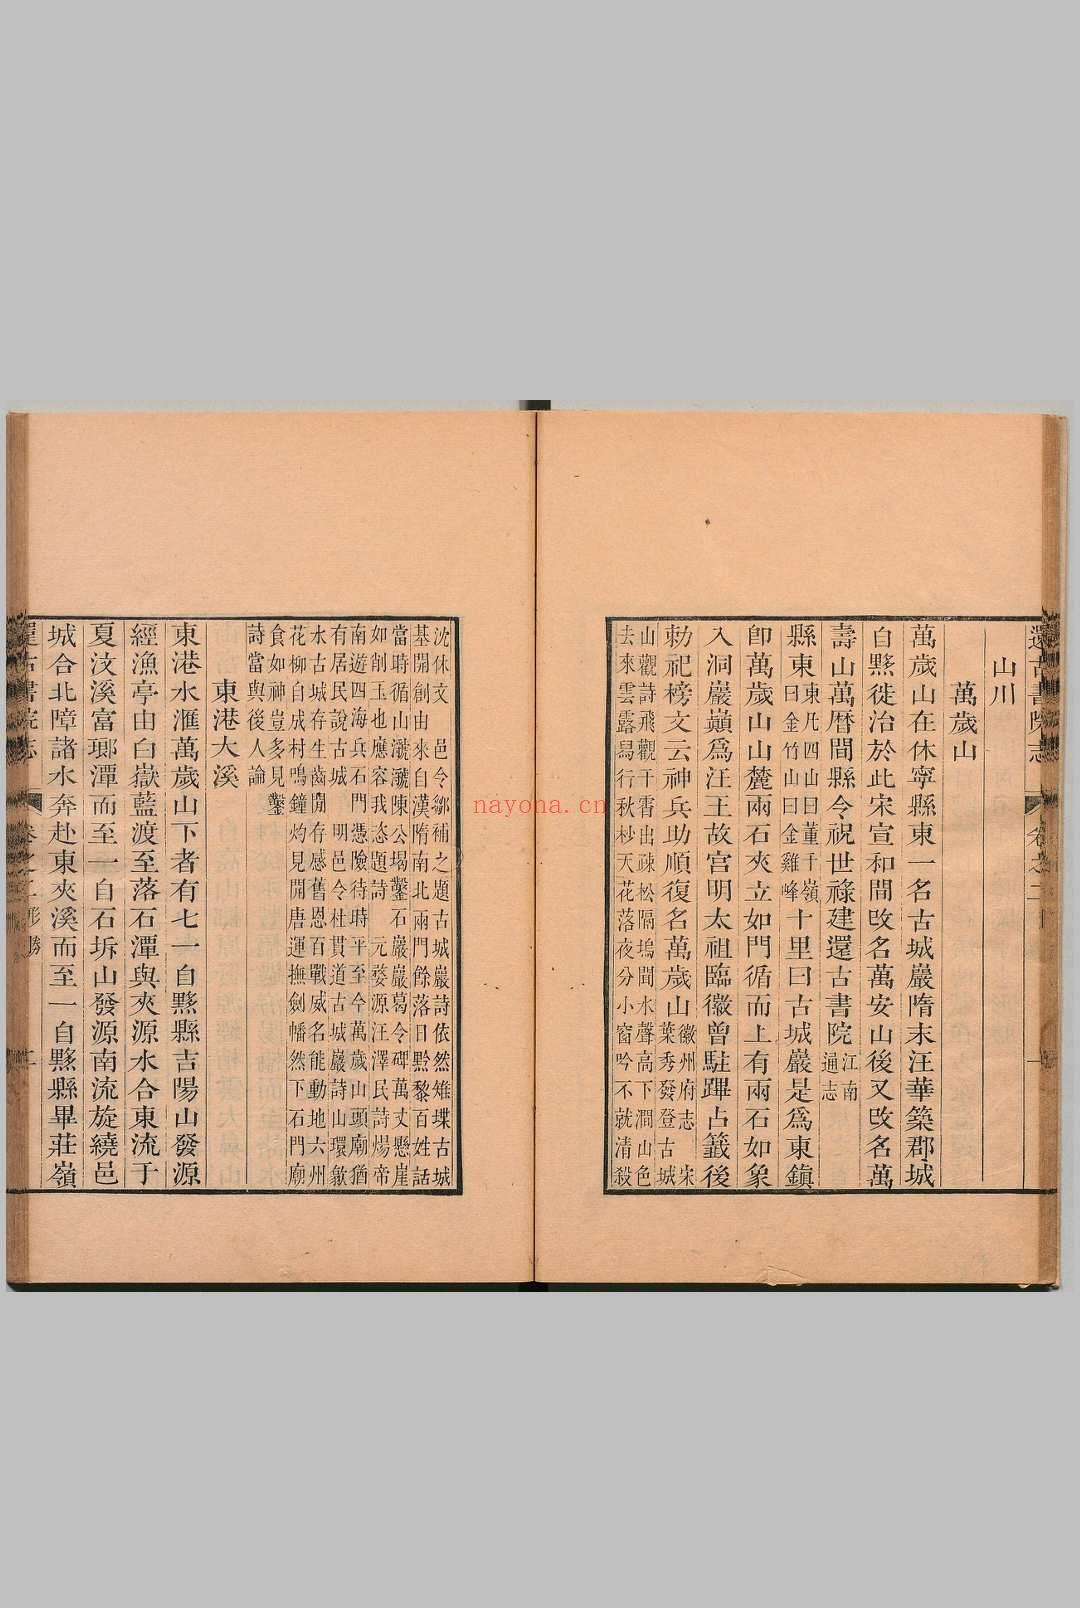 還古書院志 卷之二
山川
萬歲山
萬歲山在休寧縣東一名古城巖隋末汪華築郡城
自黟徙治於此宋宣和間改名萬安山後又改名萬
壽山萬曆間縣令祝世祿建還古書院江南
通志
縣東東凡四山曰董千嶺
曰金竹山曰金雞峰十里曰古城巖是爲東鎮
卽萬歲山山麓兩石夾立如門循而上有兩石如象
入洞巖巔爲汪王故宮明太祖臨徽曾駐蹕占籤後
勅祀榜文云神兵助順復名萬歲山徽州府志 宋
葉秀發登古城
山觀詩飛觀干霄出疎松隔塢聞水聲高下澗山色
去來雲露舄行秋杪天花落夜分小窗吟不就清殺
沈休文 邑令鄒補之題古城巖詩依然雉堞古城
基開創由來自漢隋南北兩門餘落日黔黎百姓話
當時循山㶑㶑陳公堨鑿石巖巖葛令碑萬丈懸崖
如削玉也應容我恣題詩 元婺源汪澤民詩煬帝
南遊四海兵石門憑險待時平至今萬歲山頭廟猶
有居民說古城 明邑令杜貫道古城巖詩山環歙
水古城存生齒閒存感舊恩百戰威名能動地六州
花柳自成村鳴鐘灼見開唐運撫劍幡然下石門廟
食如神豈多見鑿
詩當與後人論
東港大溪
東港水滙萬歲山下者有七一自黟縣吉陽山發源
經漁亭由白嶽藍渡至落石潭與夾源水合東流于
夏汶溪富瑯潭而至一自石坼山發源南流旋繞邑
城合北障諸水奔赴東夾溪而至一自黟縣畢莊嶺
還古書院志 卷之二形勝 二
nayona.cn